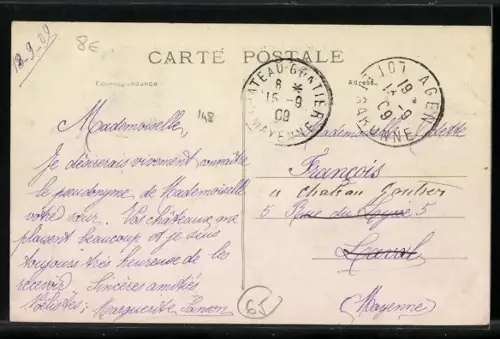 18-9-09
8€
CARTE POSTALE
Correspondance
Adresse
148
CHATEAU-GONTIER
8 *
15 -9
09
MAYENNE
AGEN
19 *
14 -9
09
LOT ET GARONNE
Mademoiselle,
Je désirerais vivement connaître
le pseudonyme de Mademoiselle
votre sœur. Vos châteaux me
plaisent beaucoup et je suis
toujours très heureuse de les
recevoir. Sincères amitiés
Marguerite
Mademoiselle Odette
François
a chateau Gontier
5 Rue du 5
Laval
(Mayenne)
65